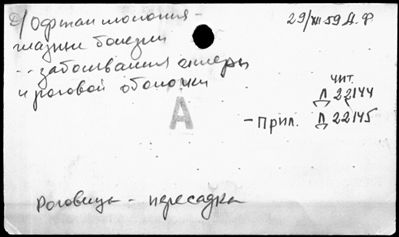 2/ Офтальмология - 29/XII 59 Д.Ф
глазные болезни
-- заболевания склеры
и роговой оболочки
чит.
Д 22144
А
- Прил. Д 22145
Роговица - пересадка